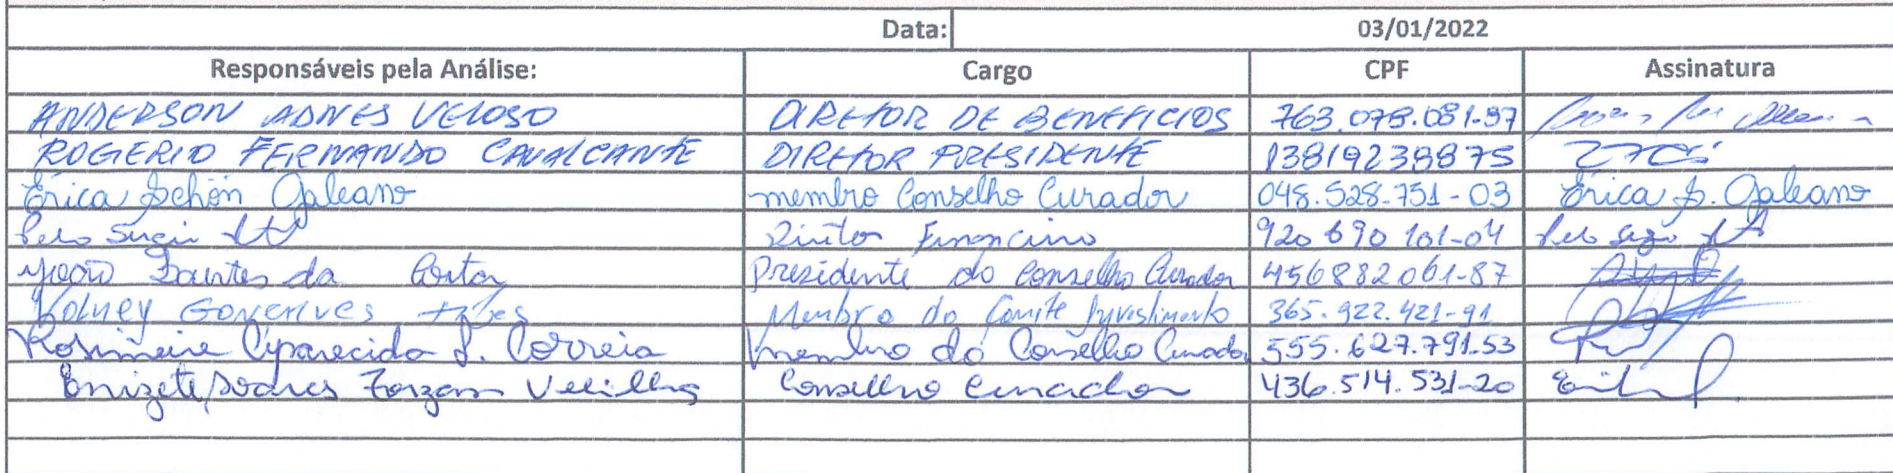 Data: 03/01/2022
Responsáveis pela Análise: Cargo CPF Assinatura
ANDERSON ADNES VELOSO DIRETOR DE BENEFICIOS 763.078.081-97
ROGERIO FERNANDO CAVALCANTE DIRETOR PRESIDENTE 13819238875
Érica Schön Galeano membro Conselho Curador 048.528.751-03 Érica S. Galeano
Diretor Financeiro 920 690 101-04
Dantes da Costa Presidente do Conselho Curador 456882061-87
Gonçalves Membro do Comite Investimento 365.922.421-91
Rosimeire Aparecida S. Correia membro do Conselho Curador 555.627.791.53
Enizete Soares Conselho Curador 436.514.531-20